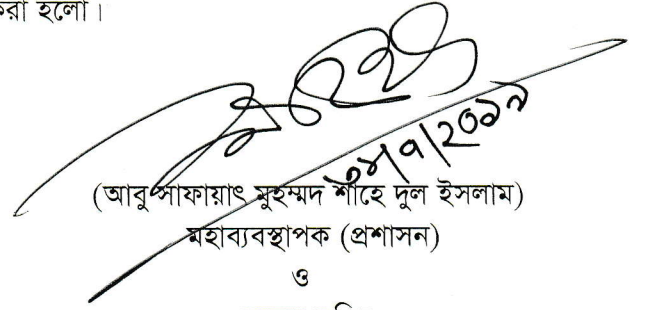 করা হলো।
(আবু সাফায়াৎ মুহম্মদ শাহে দুল ইসলাম)
মহাব্যবস্থাপক (প্রশাসন)
ও